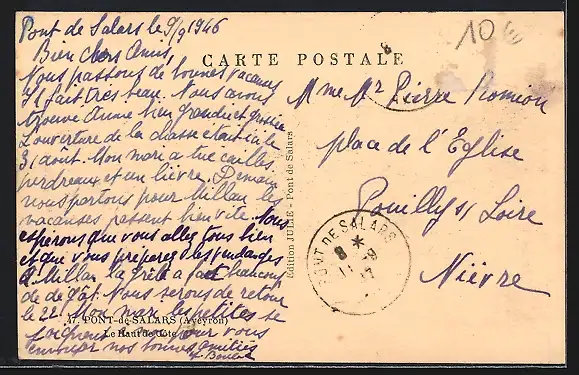 Pont de Salars le 9/9 1946
Bien chers Amis,
Nous passons de bonnes vacances
Il fait très beau. Nous avons
trouvé Anne bien grandi et grossie
L'ouverture de la chasse était ici le
31 août. Mon mari a tué cailles,
perdreaux et un lièvre. Demain
nous partons pour Millau les
vacances passent bien vite. Nous
espérons que vous allez tous bien
et que vous préparez les vendanges
A Millau la grêle a fait beaucoup
de dégât. Nous serons de retour
le 22. Mon mari, les petites se
joignent à moi pour vous
envoyer nos bonnes amitiés
17. PONT-de-SALARS (Aveyron)
Le Haut de Côte
CARTE POSTALE
Edition JULIE - Pont de Salars
10
Mme Mr Pierre Romion
place de l'Eglise
Pouilly s/ Loire
Nièvre
PONT DE SALARS